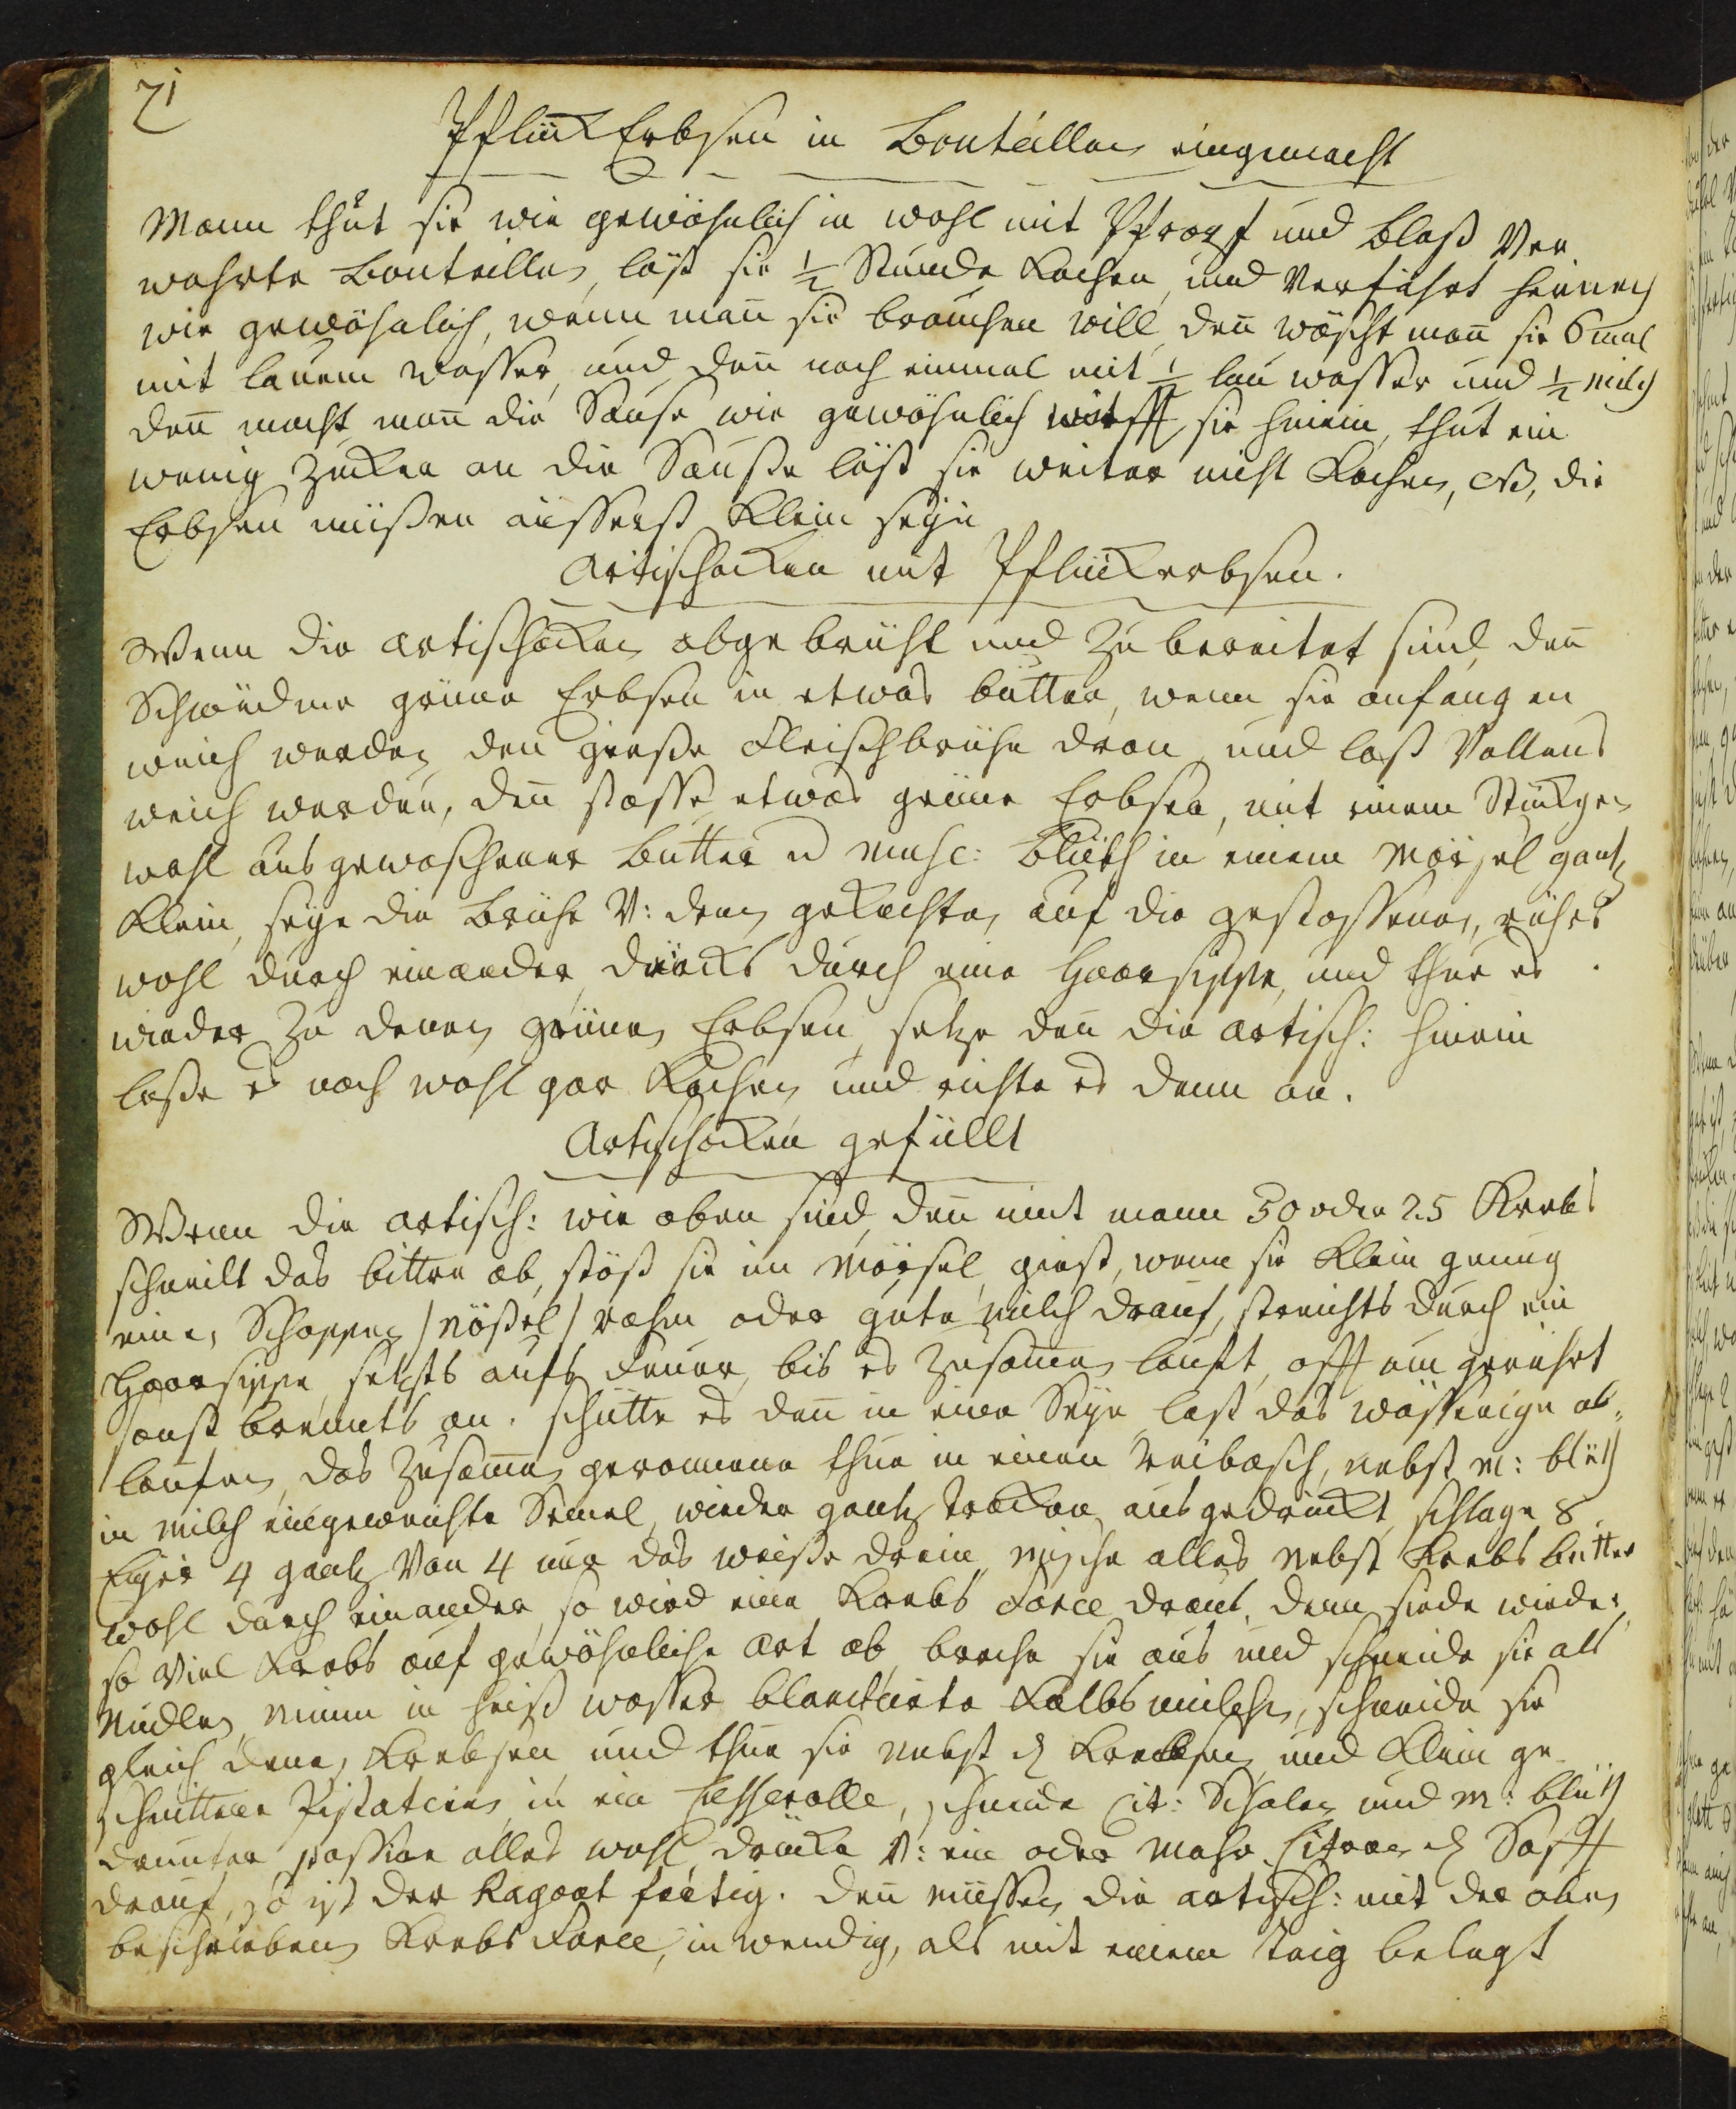 71
Pflück Erbsen in Bouteillen eingemacht
Mann thut sie wie gewöhnlich in wohl mit Pfropf und Blaß Ver
wahrte Bouteillen, läßt sie ½ Stunde Kochen, und Verfährt hernach
wie gewöhnlich, wenn mañ sie brauchen will, deñ wäscht mañ sie 6 mal
mit lauem wasser, und deñ noch einmal mit ½ lau wasser und ½ milch
deñ macht mañ die Sause wie gewöhnlich wirfft sie hinein, thut ein
wenig Zucker an die Sauße läßt sie weiter nicht Kochen, die
Erbsen müßen äusserst Klein seyn
Artischocken mit Pflückerbsen.
Wenn die artischocken abgebrüht und zu bereitet sind, deñ
Schweidme grüne Erbsen in etwas butter, wenn sie anfangen
weich werden, deñ gieße Fleischbrühe dran und laß Vollens
weich werden, deñ stosse etwas grüne Erbsen, mit einem Stückgen
wohl aus gewaschener butter u musc: blüth in einem Mörsel gantz
Klein, seye die brühe V: denen gekochten auf die gestossenen, rührs
wohl durch einander, drücks durch eine Haarsippe, und thue es
wieder Zu denen grünen Erbsen, setze deñ die artisch: hinein
laße es noch wohl gar Kochen und richte es denn an.
Artischocken gefüllt
Wenn die artisch: wie oben sind, deñ nimt mann 30 oder 25 Krebs
schneidt das bittre ab, stöß sie im Mörsel, giest, wenn sie Klein genug
einen Schoppen / Nößel / rahm oder gute milch drauf, streichts durch ein
Haarsippe, setzts aufs feuer, bis es zusamen lauft, offt um gerührt
sonst brennts an. schütte es deñ in eine Seye, last das wässerige ab-
laufen, das zusamen geronnene thue in einen Reibasch, nebst M: blüth
in milch eingeweichte Semel, wieder gantz trocken ausgedruckt, schlage 8
Eyer 4 gantz Von 4 nur das weiße drein, mische alles nebst Krebs butter
wohl durch einander, so wird eine Krebs Farce draus, denn siede wieder
so viel Krebs auf gewöhnliche Art ab, breche sie aus und schneide sie als
Nudlen, nimm in heiß wasser blanchirte Kalbsmilchen, schneide sie
gleich denen Krebsen und thue sie nebst den Krebsen und Klein ge-
schnittene Pistatcien in ein Casserolle, schneide Cit: Schalen und M: blüth
drunter, passire alles wohl, drücke V: ein oder mehr Citronen Safft
drauf, so ist der Ragout fertig. deñ müssen die artisch: mit der oben
beschrieben Krebs Farce, in wendig, als mit einem Teig belegt